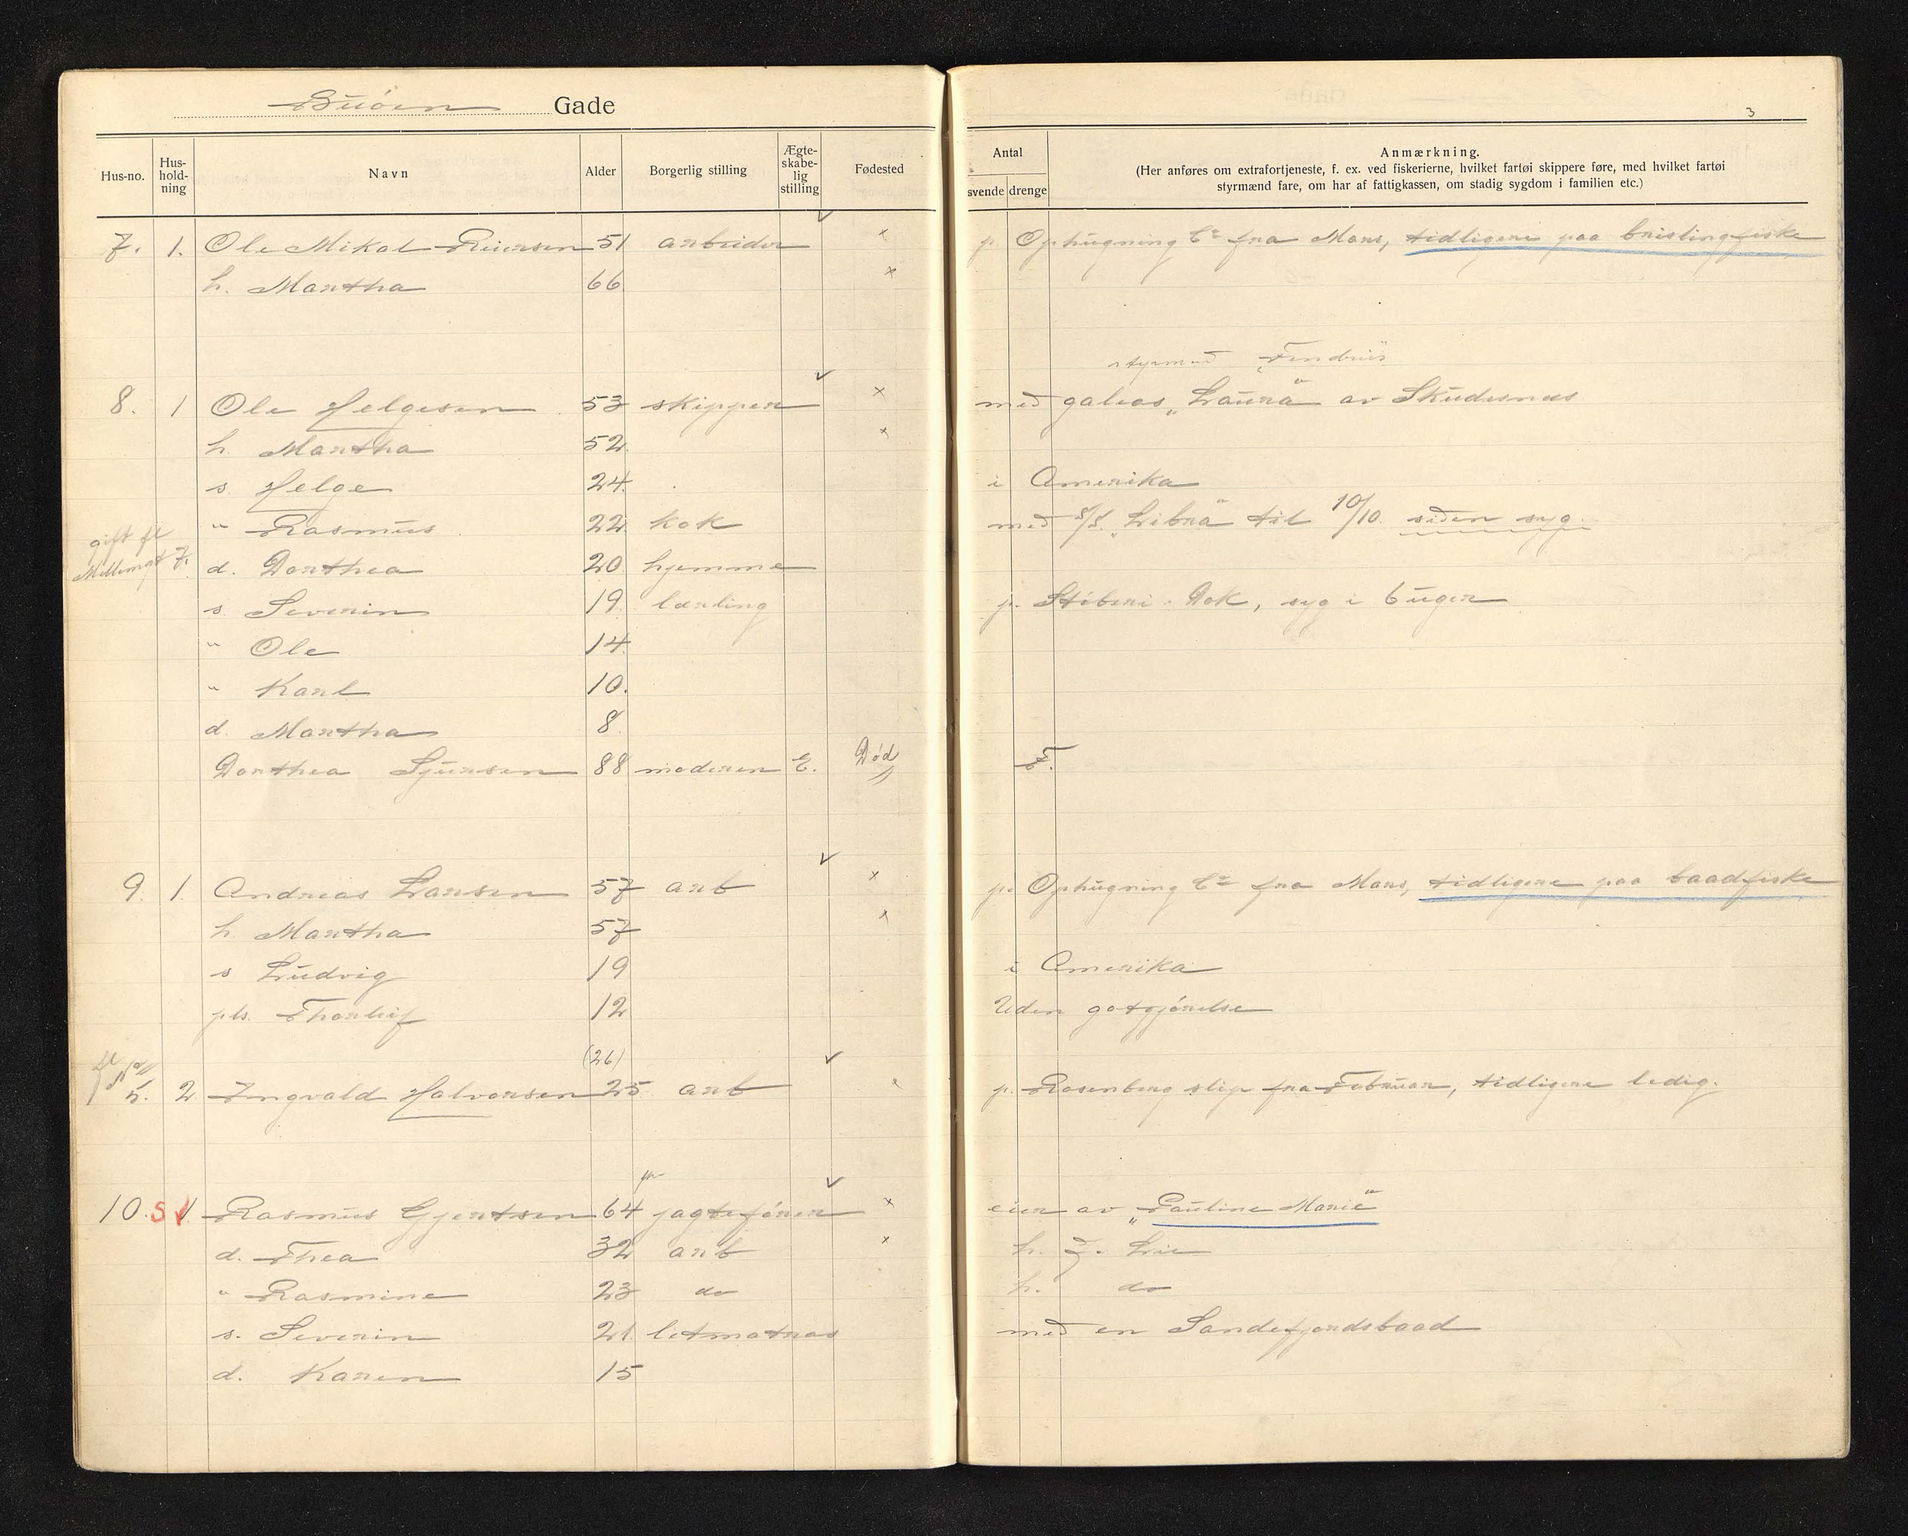 Buöen Gade
3
Hus-no. Hus-hold-ning Navn Alder Borgerlig stilling Ægte-skabe-lig stilling Fødested Antal svende drenge Anmærkning.
(Her anføres om extrafortjeneste, f. ex. ved fiskerierne, hvilket fartøi skippere føre, med hvilket fartøi
styrmænd fare, om har af fattigkassen, om stadig sygdom i familien etc.)
7. 1. Ole Mikal Reiersen 51 arbeider × p. Ophugning Co fra Mars, tidligere paa brislingfiske
h. Martha 66 ×
styrmand
8. 1 Ole Helgesen 53 skipper × med galeas "Laura" av Skudesnes
h. Martha 52 ×
s Helge 24. i Amerika
" Rasmus 22 kok med s/s. "Libra" til 10/10. siden syg.
gift fl
7. d. Dorthea 20 hjemme
s. Severin 19 lærling p. Stöberi. Dok, syg i 6 uger
" Ole 14
" Karl 10.
d. Martha 8
Dorthea Sjursen 88 moderen E. Død F.
9. 1. Andreas Larsen 57 arb × p. Ophugning Co fra Mars, tidligere paa baadfiske
h. Martha 57 ×
s Ludvig 19 i Amerika
pls. Thorleif 12 Uden gotgjörelse
(26)
fl
5. 2 Ingvald Halvorsen 25 arb p. Rosenberg slip fra Februar, tidligere ledig.
10. S 1 Rasmus Gjertsen 64 jagtefører × eier av "Pauline Marie"
d. Thea 32 arb × h. J. Lie
" Rasmine 23 do h. do
s. Severin 21 letmatros med en Sandefjordsbaad
d. Karen 15